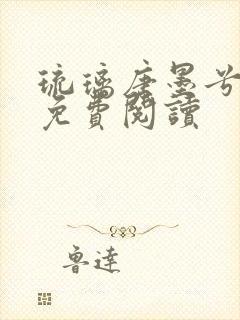 琉璃唐墨兮
免費閱讀
魯達